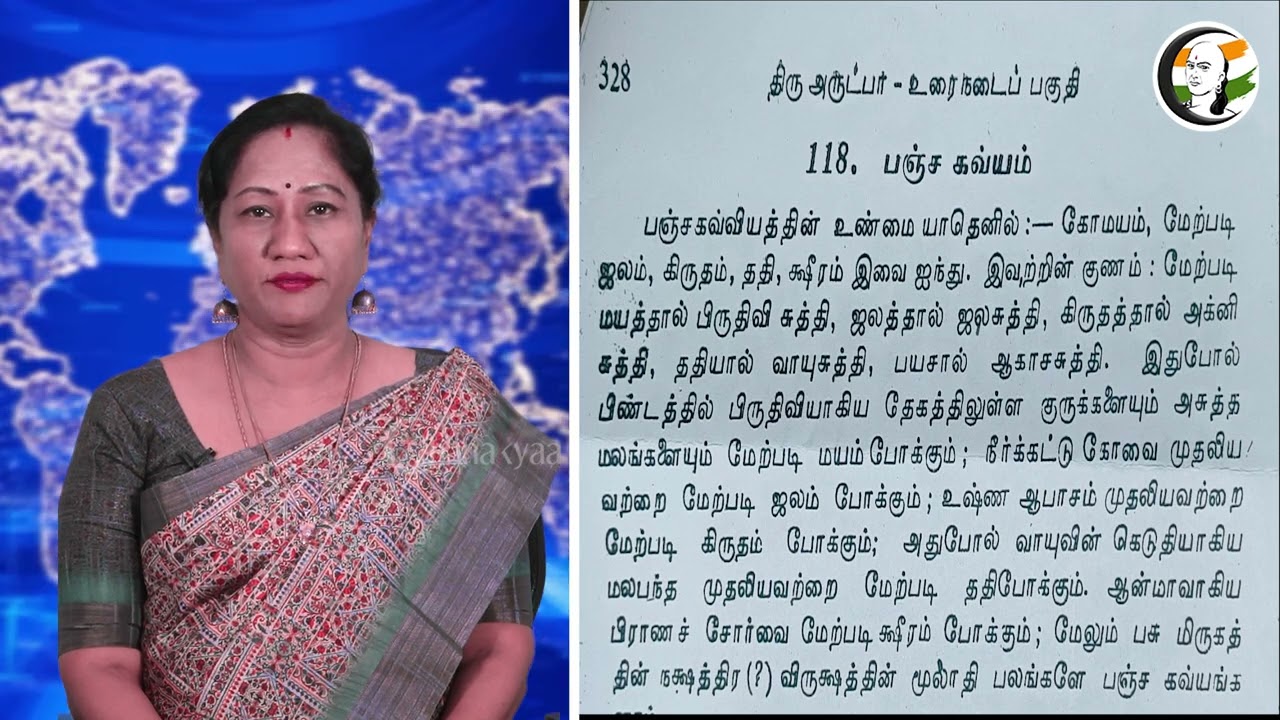 328
திரு அருட்பா - உரைநடைப் பகுதி
118. பஞ்ச கவ்யம்
பஞ்சகவ்வியத்தின் உண்மை யாதெனில் :— கோமயம், மேற்படி
ஜலம், கிருதம், ததி, க்ஷீரம் இவை ஐந்து. இவற்றின் குணம் : மேற்படி
மயத்தால் பிருதிவி சுத்தி, ஜலத்தால் ஜலசுத்தி, கிருதத்தால் அக்னி
சுத்தி, ததியால் வாயுசுத்தி, பயசால் ஆகாசசுத்தி. இதுபோல்
பிண்டத்தில் பிருதிவியாகிய தேகத்திலுள்ள குருக்களையும் அசுத்த
மலங்களையும் மேற்படி மயம் போக்கும் ; நீர்க்கட்டு கோவை முதலிய
வற்றை மேற்படி ஜலம் போக்கும் ; உஷ்ண ஆபாசம் முதலியவற்றை
மேற்படி கிருதம் போக்கும்; அதுபோல் வாயுவின் கெடுதியாகிய
மலபந்த முதலியவற்றை மேற்படி ததிபோக்கும். ஆன்மாவாகிய
பிராணச் சோர்வை மேற்படி க்ஷீரம் போக்கும் ; மேலும் பசு மிருகத்
தின் நக்ஷத்திர (?) விருக்ஷத்தின் மூலாதி பலங்களே பஞ்ச கவ்யங்க